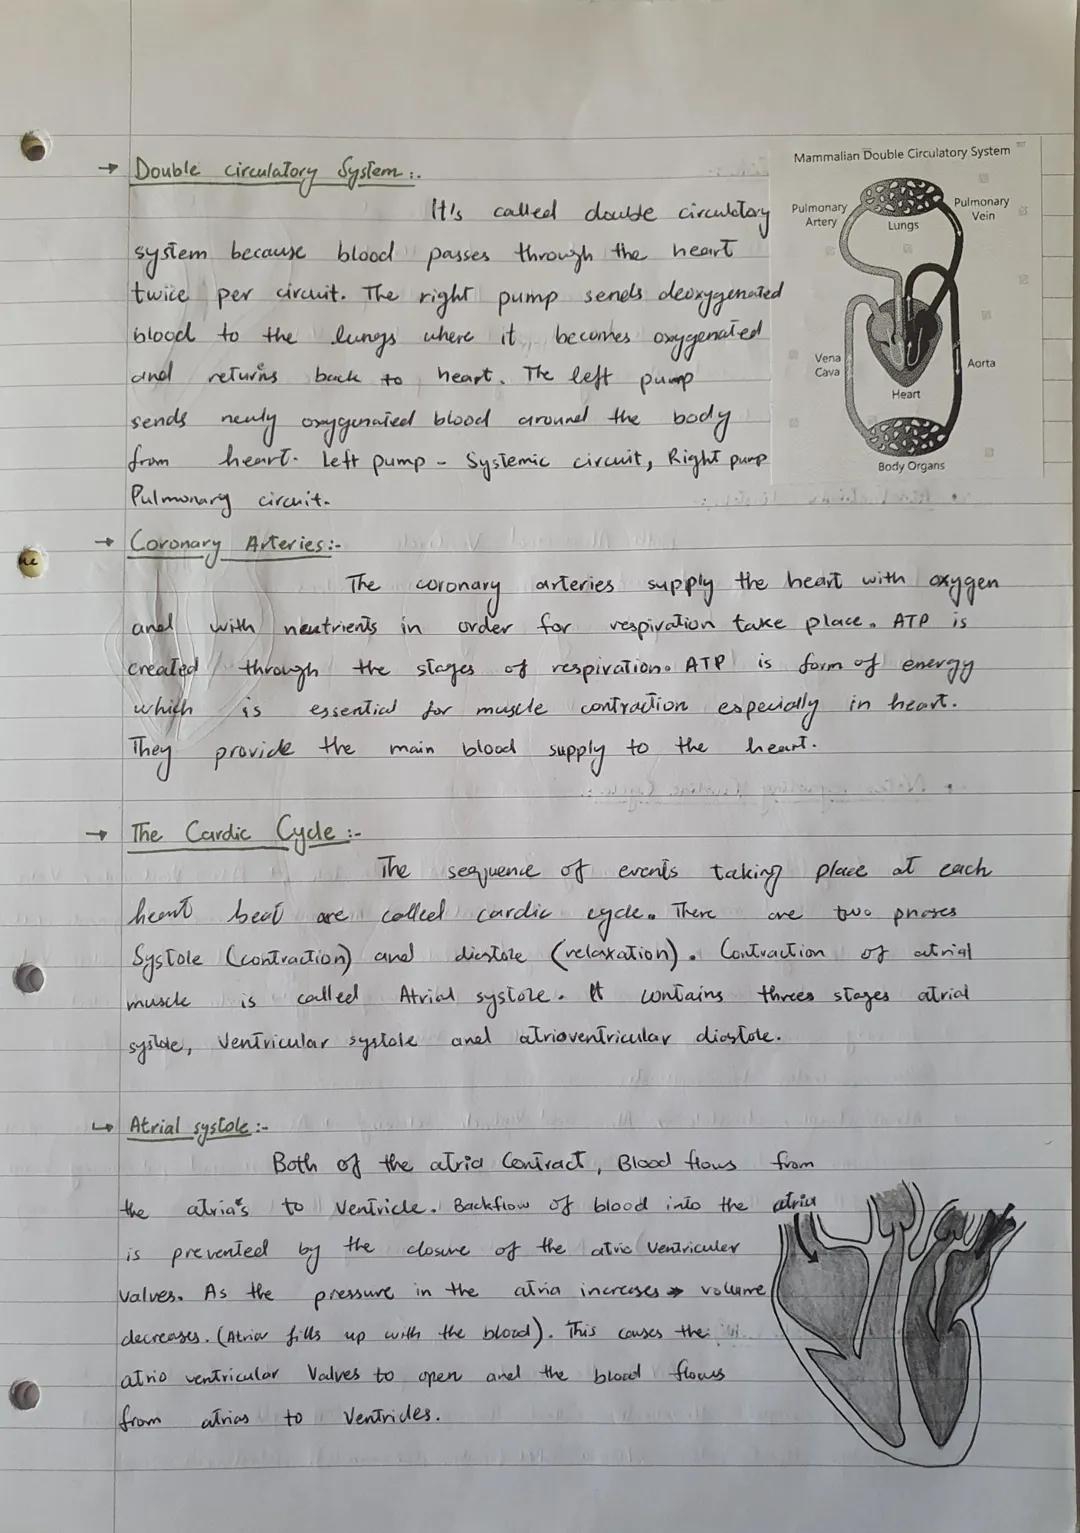 → Double circulatory System :.
Mammalian Double Circulatory System
Pulmonary Artery
Lungs
Pulmonary Vein
Vena Cava
Heart
Aorta
Body Organs
It's called double circulatory
system because blood passes through the heart
twice per circuit. The right pump sends deoxygenated
blood to the lungs where it becomes oxygenated
and returns back to heart. The left pump
sends newly oxygenated blood around the body
from heart. Left pump - Systemic circuit, Right pump
Pulmonary circuit.
→ Coronary Arteries:-
The coronary arteries supply the heart with oxygen
and with neutrients in order for respiration take place. ATP is
created through the stages of respiration. ATP is form of energy
which is essential for muscle contraction especially in heart.
They provide the main blood supply to the heart.
→ The Cardic Cycle :-
The sequence of events taking place at each
heart beat are called cardic cycle. There are two phases
Systole (contraction) and diastole (relaxation). Contraction of atrial
muscle is called Atrial systole. It contains threes stages atrial
systole, Ventricular systole and atrioventricular diastole.
↳ Atrial systole :-
Both of the atria Contract, Blood flows from
the atria's to Ventricle. Backflow of blood into the atria
is prevented by the closure of the atrio Ventriculer
valves. As the pressure in the atria increases → volume
decreases. (Atria fills up with the blood). This causes the
atrio ventricular Valves to open and the blood flows
from atrias to Ventricles.